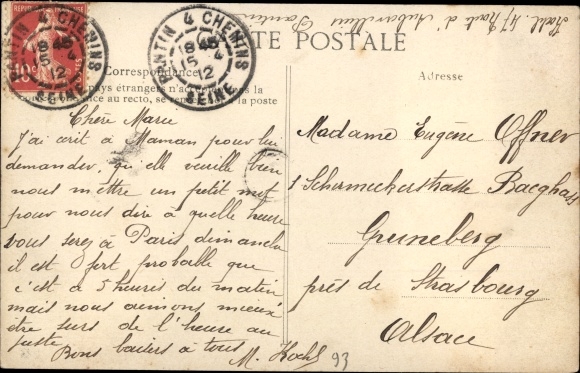 PANTIN 4 CHEMINS
18 45
15 4
12
SEINE
PANTIN 4 CHEMINS
18 45
15 4
12
SEINE
10
CARTE POSTALE
Kohl. 47 Route d'Aubervilliers Pantin
Correspondance
pays étrangers n'acc la
ance au recto, se re à la poste
Adresse
Chère Marie
J'ai écrit à Maman pour lui
demander, qu'elle veuille bien
nous mettre un petit mot
pour nous dire à quelle heure
vous serez à Paris dimanche
il est fort probable que
c'est à 5 heures du matin
mais nous aimons mieux
être surs de l'heure au
juste
Bons baisers à tous
M. Kohl
93
Madame Eugène Offner
1 Schirmeckerstrasse
Gruneberg
près de Strasbourg
Alsace